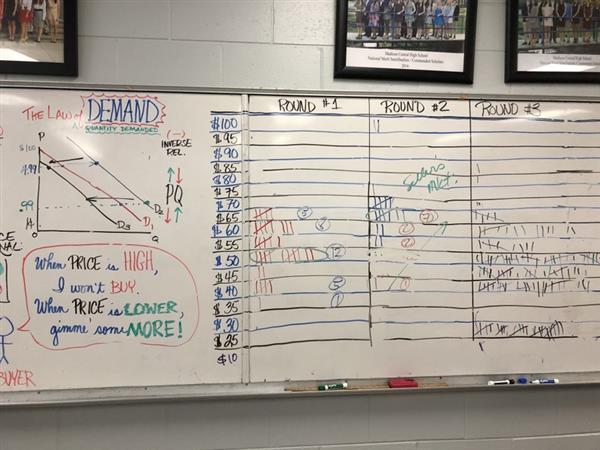 Madison Central High School
National Merit Semifinalists / Commended Scholars
The Law of DEMAND
QUANTITY DEMANDED
(-)
INVERSE
REL.
P
$100
4.99
.99
Q
D1
D2
D3
PQ
When PRICE is HIGH,
I won't BUY.
When PRICE is LOWER,
gimme some MORE!
BUYER
ROUND #1
ROUND #2
ROUND #3
$100
$95
$90
$85
$80
$75
$70
$65
$60
$55
$50
$45
$40
$35
$30
$25
$10
Seller's
Mkt.
12